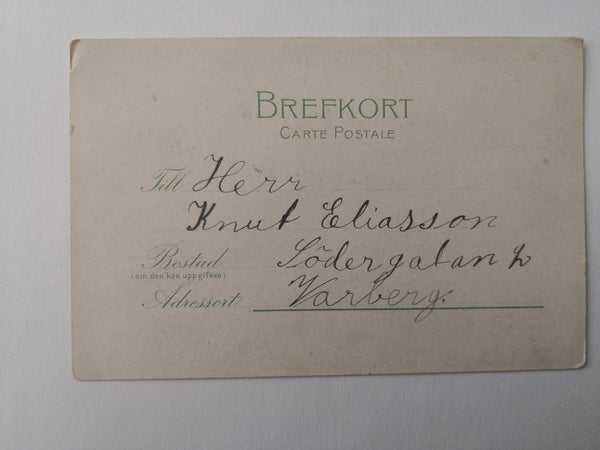 BREFKORT
CARTE POSTALE
Till Herr
Knut Eliasson
Bostad Södergatan
(om den kan uppgifvas)
Adressort Varberg.